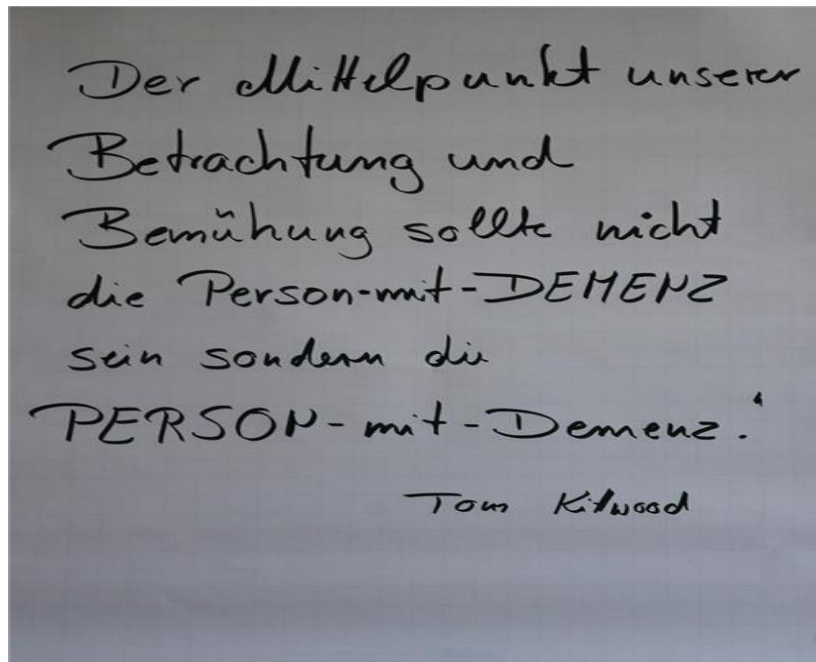 Der Mittelpunkt unserer
Betrachtung und
Bemühung sollte nicht
die Person-mit-DEMENZ
sein sondern die
PERSON-mit-Demenz."
Tom Kitwood